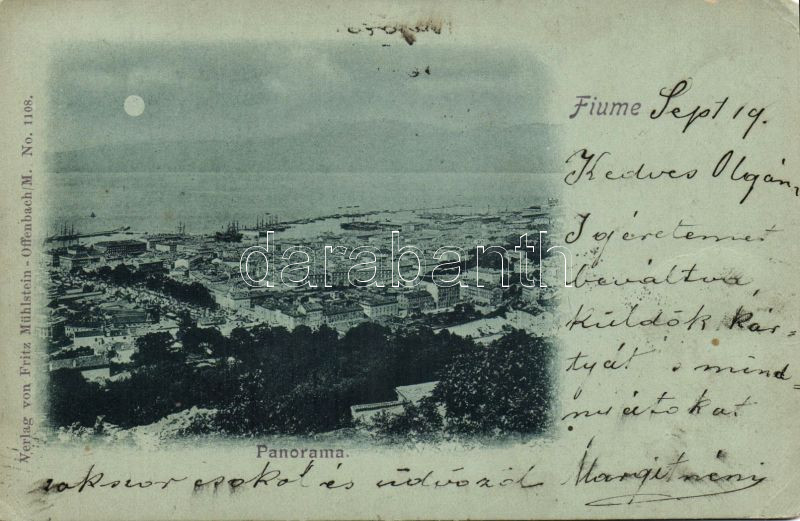 Verlag von Fritz Mühlstein - Offenbach/M. No. 1108.
Fiume
Sept 19.
Kedves Olgán,
Igéretemet
beváltva,
küldök kár-
tyát s mind-
nyiátokat
sokszor csókol és üdvözöl Margitnéni
Panorama.
darabanth